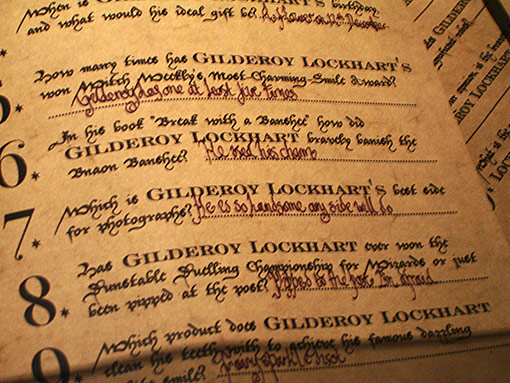 When is GILDEROY LOCKHART'S birthday,
and what would his ideal gift be? A flower on 12th December
5. How many times has GILDEROY LOCKHART'S
won Witch Weekly's Most-Charming-Smile Award?
Gilderoy has one at least five times
In his book "Break with a Banshee" how did
6. GILDEROY LOCKHART bravely banish the
Bnaon Banshee? He used his charm
7. Which is GILDEROY LOCKHART'S best side
for photographs? He is so handsome any side will do
Has GILDEROY LOCKHART ever won the
8. Dunstable Duelling Championship for Wizards or just
been pipped at the post? Pipped to the post I'm afraid
Which product does GILDEROY LOCKHART
9. clean his teeth with to achieve his famous dazzling
smile?